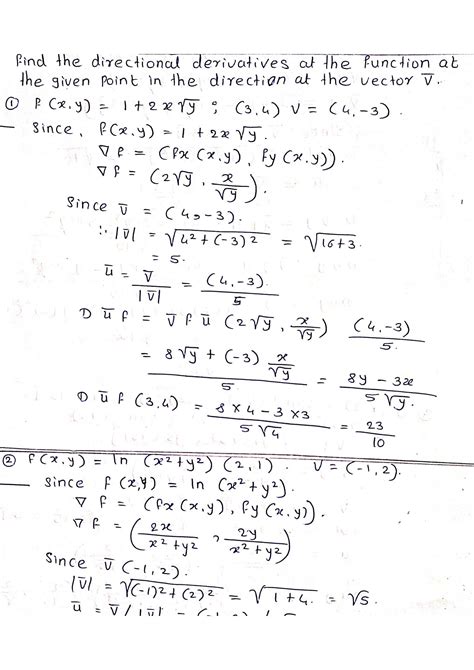 Find the directional derivatives at the function at
the given point in the direction at the vector V̅.
① f(x,y) = 1+2x√y ; (3,4) V = (4,-3).
Since, f(x,y) = 1 + 2x√y.
∇f = (fx(x,y), fy(x,y)).
∇f = (2√y, x/√y).
Since V̅ = (4,-3).
∴ |V̅| = √4²+(-3)² = √16+3.
= 5.
u̅ = V̅/|V̅| = (4,-3)./5
D u̅ f = V̅ f u̅ (2√y, x/√y) (4,-3)/5.
= 8√y + (-3) x/√y / 5 = 8y - 3x / 5√y.
D u̅ f (3,4) = 8×4-3×3 / 5√4 = 23/10
② f(x,y) = ln (x²+y²) (2,1). V = (-1,2).
Since f(x,y) = ln (x²+y²).
∇f = (fx(x,y), fy(x,y)).
∇f = (2x/x²+y², 2y/x²+y²)
Since V̅ (-1,2).
|V̅| = √(-1)²+(2)² = √1+4. = √5.
u̅ = V̅/|V̅| =